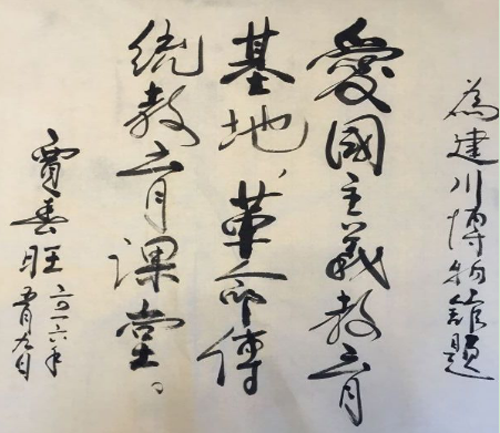 為建川博物館題
愛國主義教育
基地,革命傳
統教育课堂。
賈春旺
二〇一六年
五月九日